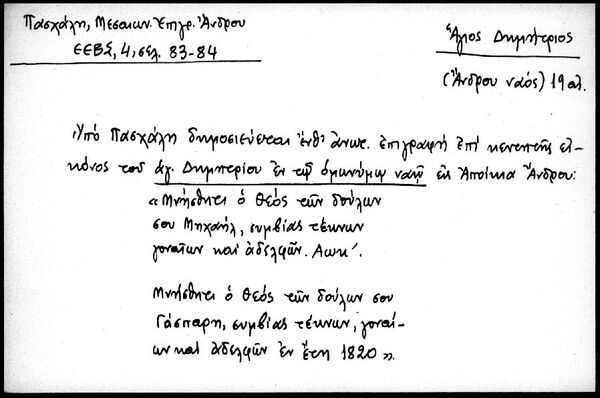 Πασχάλη, Μεσαιων. Ἐπιγρ. Ἄνδρου
ΕΕΒΣ, 4, σελ. 83-84
Ἅγιος Δημήτριος
(Ἄνδρου ναός) 19 αἰ.
Ὑπό Πασχάλη δημοσιεύεται ἔνθ' ἄνωτ. ἐπιγραφή ἐπί εἰ-
κόνος τοῦ ἁγ. Δημητρίου ἐν τῷ ὁμωνύμῳ ναῷ εἰς Ἀποίκια Ἄνδρου:
«Μνήσθητι ὁ Θεός τῶν δούλων
σου Μιχαήλ, συμβίας τέκνων
γοναίων καί ἀδελφῶν. Αωκ'.
Μνήσθητι ὁ Θεός τῶν δούλων σου
Γάσπαρη, συμβίας τέκνων, γοναί-
ων καί ἀδελφῶν ἐν ἔτη 1820».